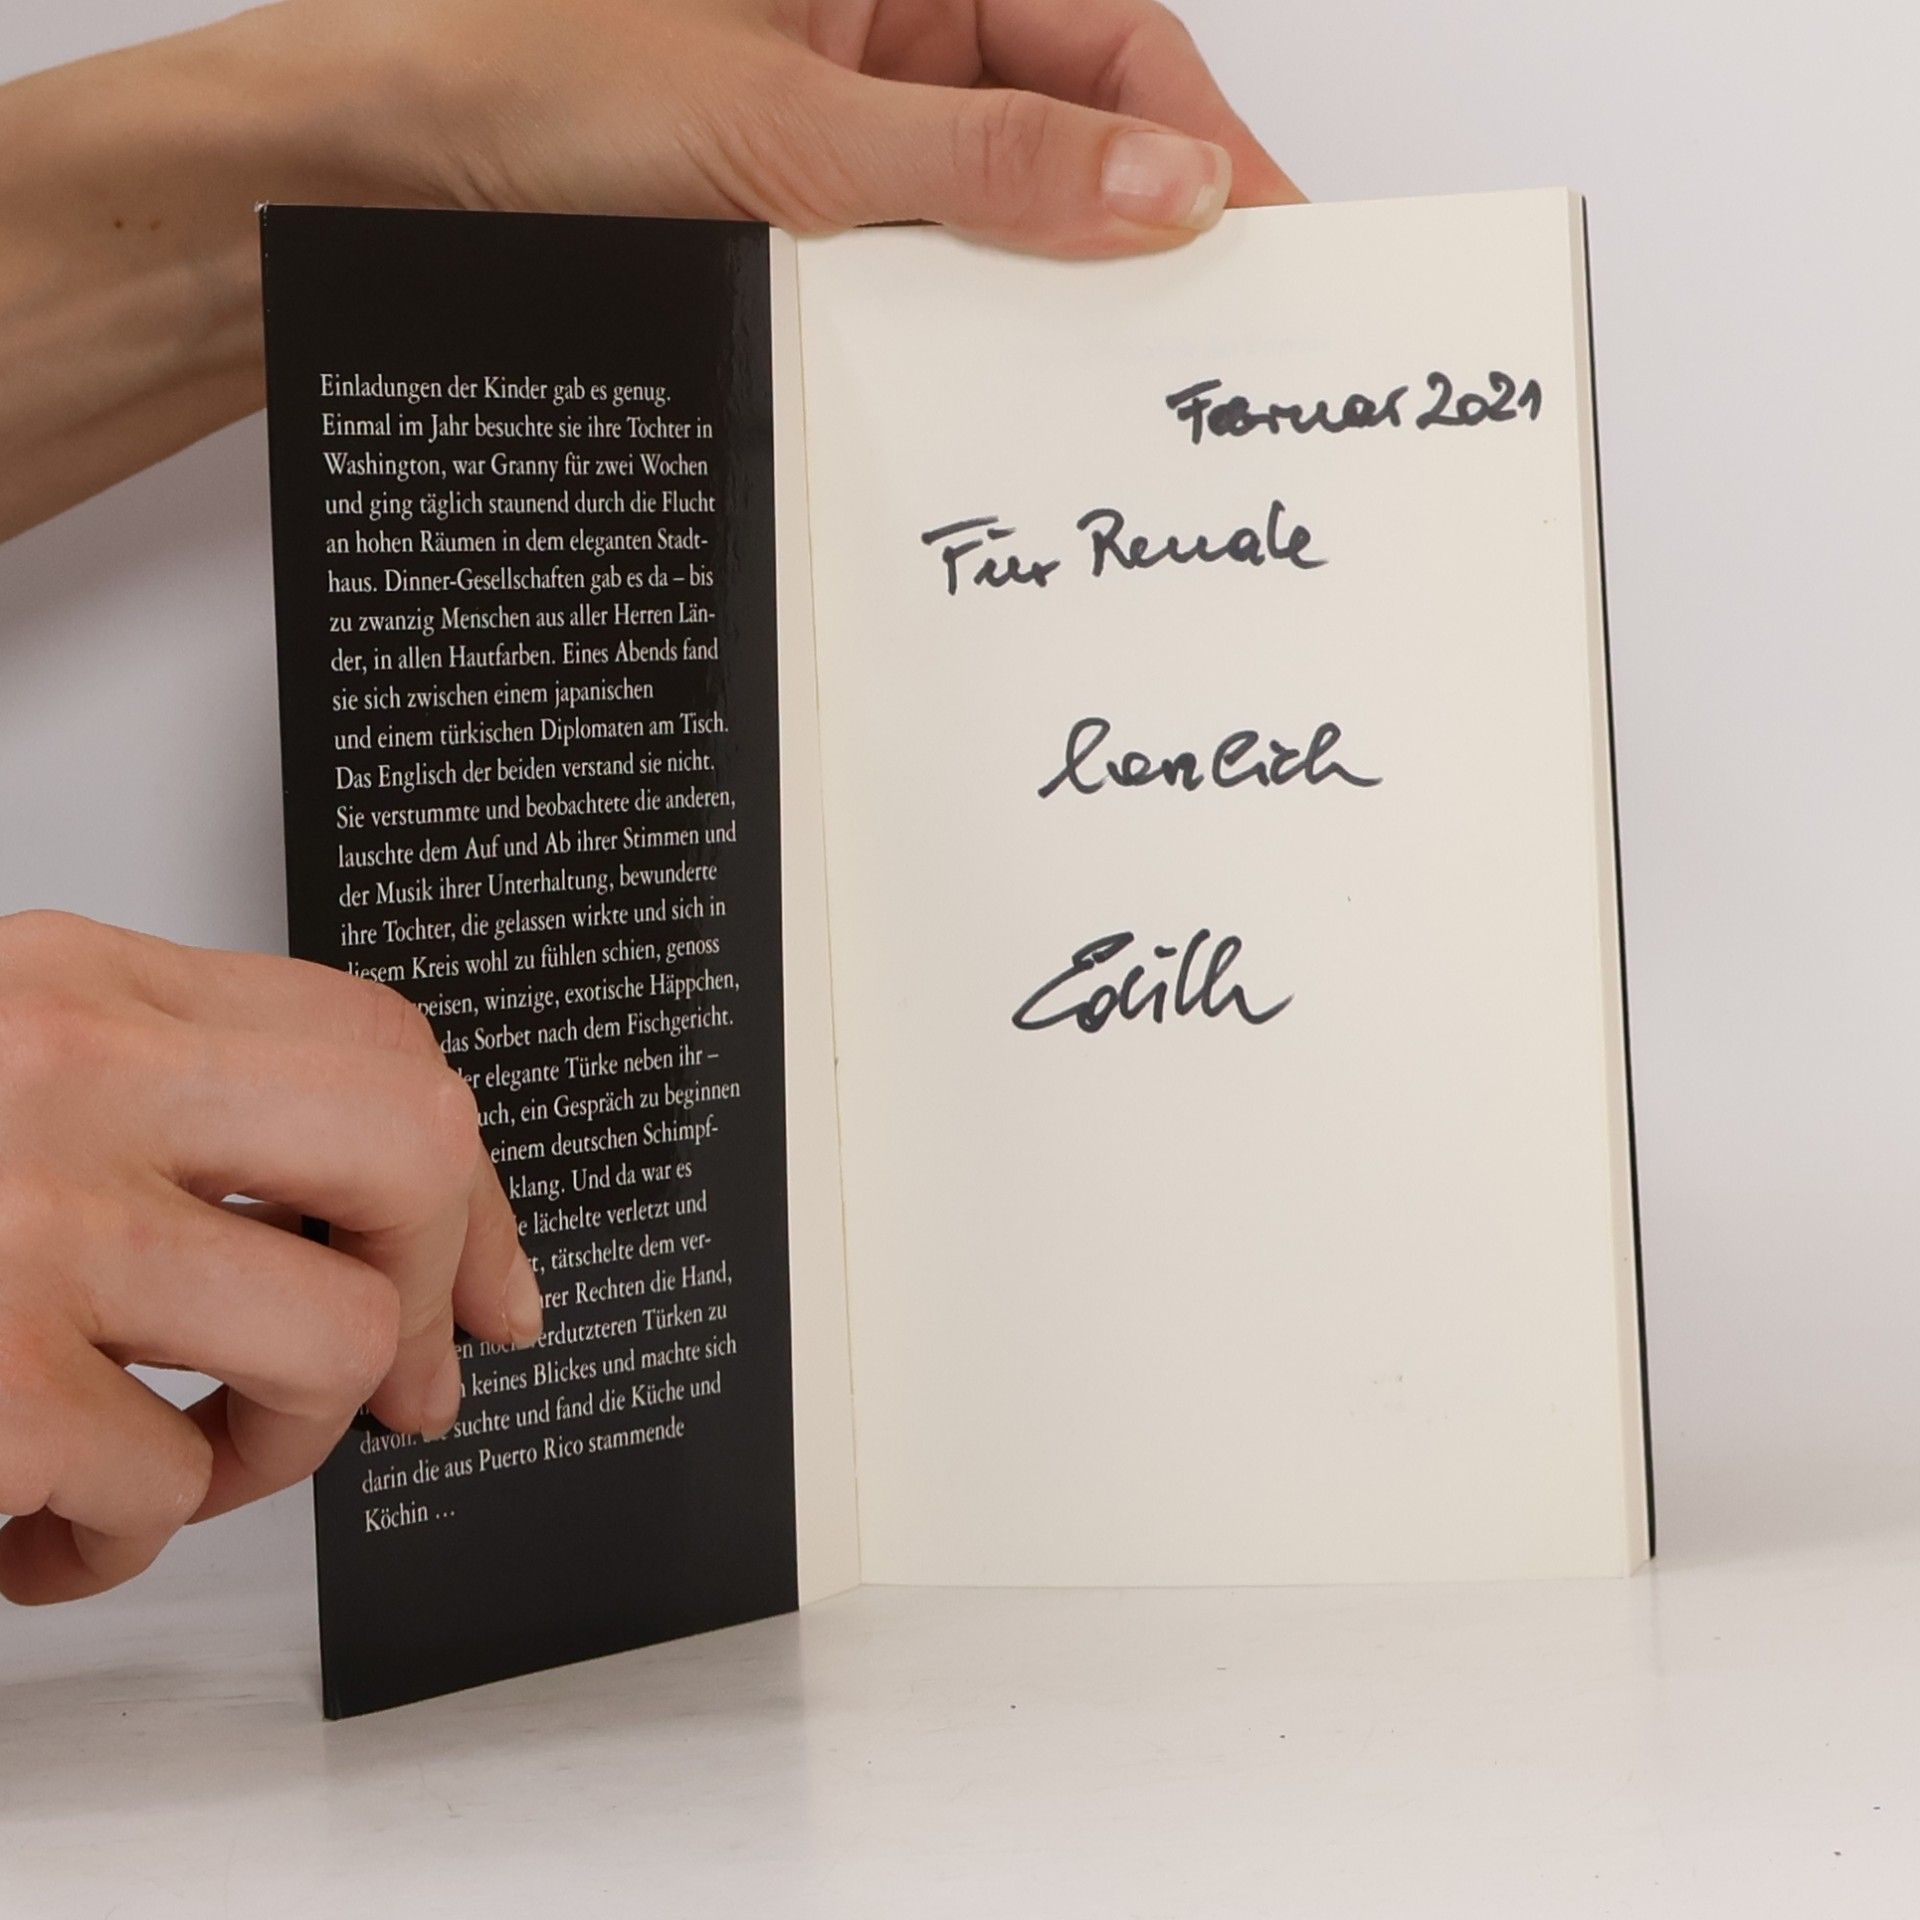 Einladungen der Kinder gab es genug.
Einmal im Jahr besuchte sie ihre Tochter in
Washington, war Granny für zwei Wochen
und ging täglich staunend durch die Flucht
an hohen Räumen in dem eleganten Stadt-
haus. Dinner-Gesellschaften gab es da – bis
zu zwanzig Menschen aus aller Herren Län-
der, in allen Hautfarben. Eines Abends fand
sie sich zwischen einem japanischen
und einem türkischen Diplomaten am Tisch.
Das Englisch der beiden verstand sie nicht.
Sie verstummte und beobachtete die anderen,
lauschte dem Auf und Ab ihrer Stimmen und
der Musik ihrer Unterhaltung, bewunderte
ihre Tochter, die gelassen wirkte und sich in
diesem Kreis wohl zu fühlen schien, genoss
peisen, winzige, exotische Häppchen,
das Sorbet nach dem Fischgericht.
der elegante Türke neben ihr –
uch, ein Gespräch zu beginnen
einem deutschen Schimpf-
klang. Und da war es
e lächelte verletzt und
t, tätschelte dem ver-
hrer Rechten die Hand,
en noch verdutzteren Türken zu
keines Blickes und machte sich
davon. suchte und fand die Küche und
darin die aus Puerto Rico stammende
Köchin ...
Februar 2021
Für Renate
herzlich
Edith